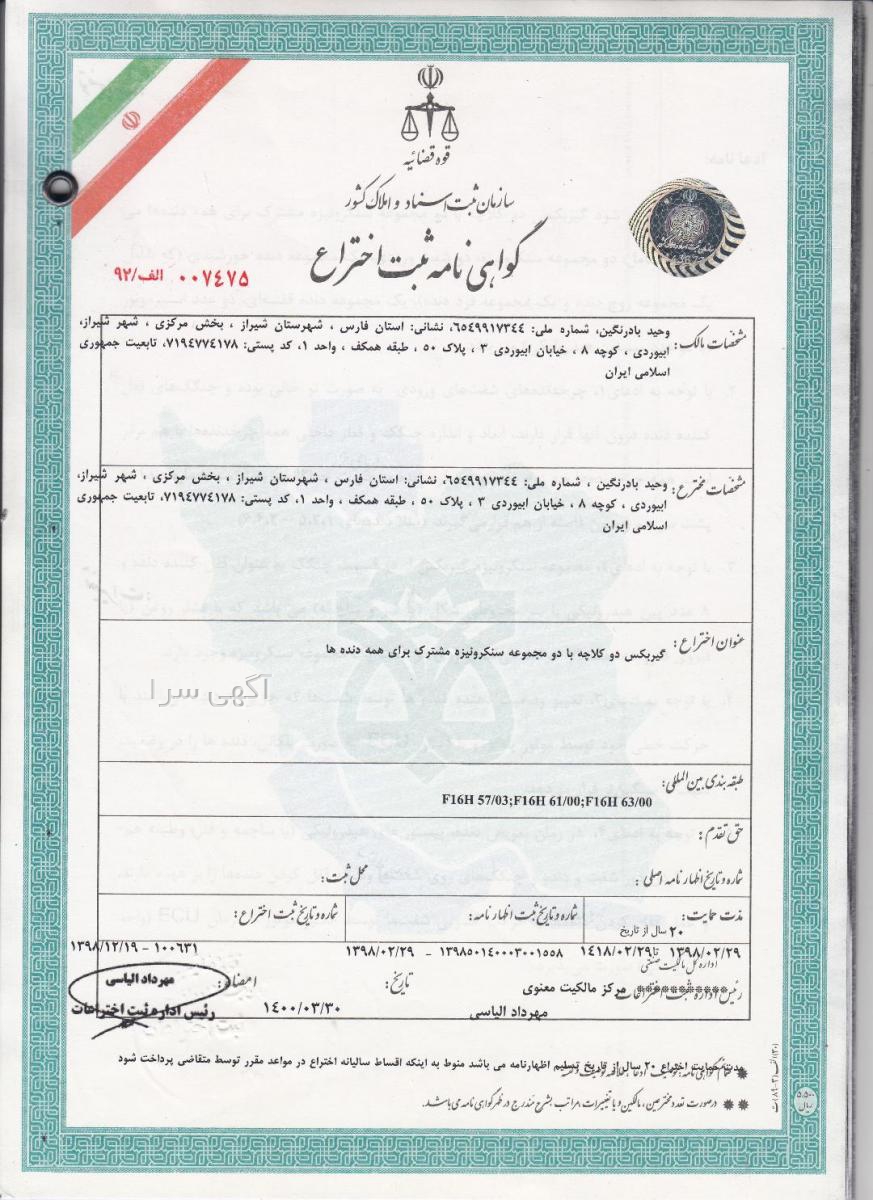 قوه قضائیه
سازمان ثبت اسناد و املاک کشور
گواهی نامه ثبت اختراع
۰۰۷۴۷۵ الف/۹۲
مشخصات مالک: وحید بادرنگین، شماره ملی: ۶۵۴۹۹۱۷۳۴۴، نشانی: استان فارس ، شهرستان شیراز ، بخش مرکزی ، شهر شیراز،
ابیوردی ، کوچه ۸ ، خیابان ابیوردی ۳ ، پلاک ۵۰ ، طبقه همکف ، واحد ۱، کد پستی: ۷۱۹۴۷۷۴۱۷۸، تابعیت جمهوری
اسلامی ایران
مشخصات مخترع: وحید بادرنگین ، شماره ملی: ۶۵۴۹۹۱۷۳۴۴، نشانی: استان فارس ، شهرستان شیراز ، بخش مرکزی ، شهر شیراز،
ابیوردی ، کوچه ۸ ، خیابان ابیوردی ۳ ، پلاک ۵۰ ، طبقه همکف ، واحد ۱، کد پستی: ۷۱۹۴۷۷۴۱۷۸، تابعیت جمهوری
اسلامی ایران
عنوان اختراع: گیربکس دو کلاچه با دو مجموعه سنکرونیزه مشترک برای همه دنده ها
آگهی سرا
طبقه بندی بین المللی:
F16H 57/03;F16H 61/00;F16H 63/00
حق تقدم:
شماره و تاریخ اظهار نامه اصلی: محل ثبت:
مدت حمایت: شماره و تاریخ ثبت اظهار نامه: شماره و تاریخ ثبت اختراع:
۲۰ سال از تاریخ
۱۳۹۸/۰۲/۲۹ تا ۱۴۱۸/۰۲/۲۹ ۱۳۹۸۵۰۱۴۰۰۰۳۰۰۱۵۵۸ - ۱۳۹۸/۰۲/۲۹ ۱۰۰۶۳۱ - ۱۳۹۸/۱۲/۱۹
اداره کل مالکیت صنعتی
رئیس اداره ثبت اختراعات مرکز مالکیت معنوی تاریخ: امضاء:
مهرداد الیاسی ۱۴۰۰/۰۳/۳۰
مهرداد الیاسی
رئیس اداره ثبت اختراعات
مدت حمایت اختراع ۲۰ سال از تاریخ تسلیم اظهارنامه می باشد منوط به اینکه اقساط سالیانه اختراع در مواعد مقرر توسط متقاضی پرداخت شود
** درصورت تعدد مخترعین، مالکین و یا تغییرات، مراتب بشرح مندرج در ظهر گواهی نامه می باشد.
۵،۵۰۰
ریال